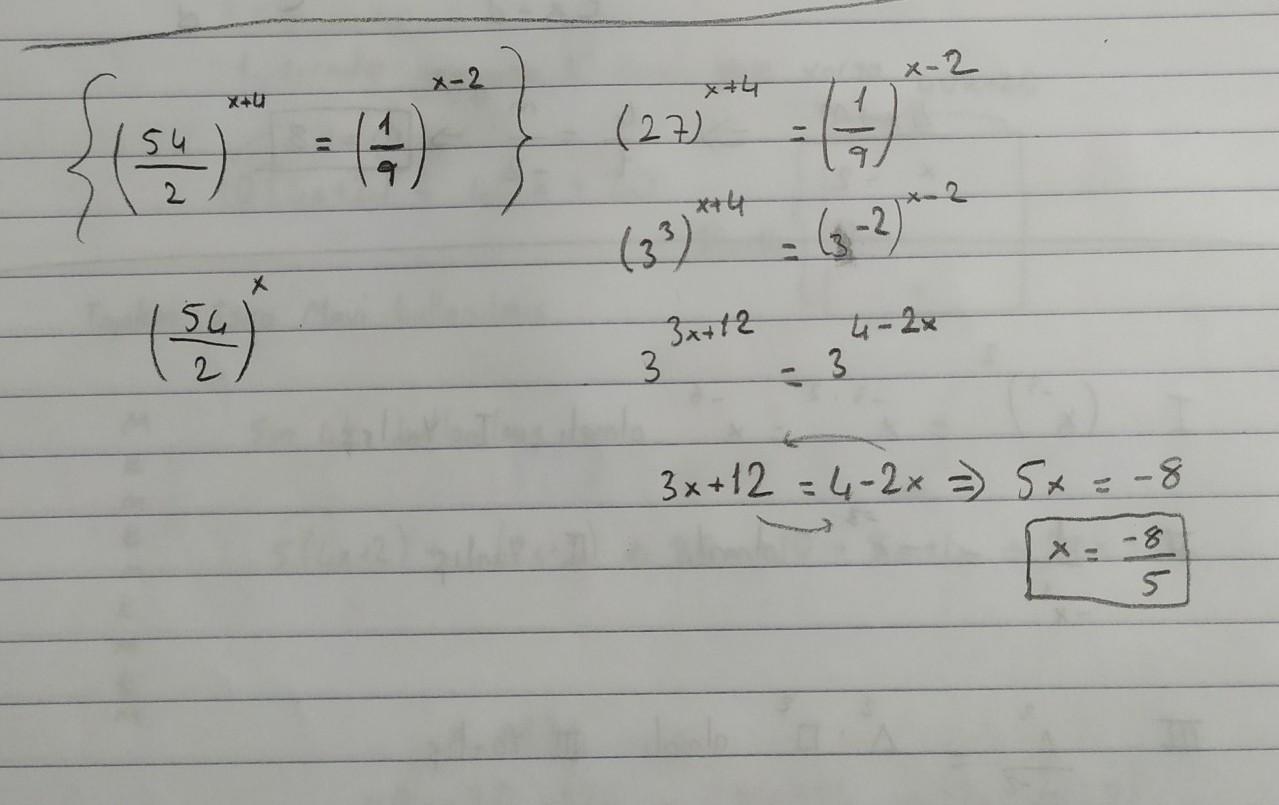 {(54/2)^(x+4) = (1/9)^(x-2)}
(54/2)^x
(27)^(x+4) = (1/9)^(x-2)
(3^3)^(x+4) = (3^-2)^(x-2)
3^(3x+12) = 3^(4-2x)
3x+12 = 4-2x ⇒ 5x = -8
x = -8/5